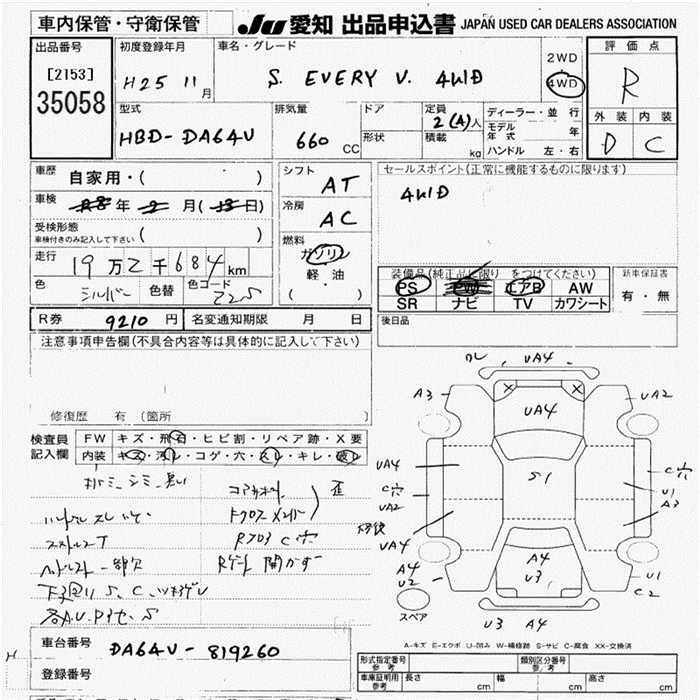 車内保管・守衛保管
JU 愛知 出品申込書 JAPAN USED CAR DEALERS ASSOCIATION
出品番号
[2153]
35058
初度登録年月
H25 11月
車名・グレード
S. EVERY V. 4WD
2WD
4WD
評価点
R
外装 内装
D C
型式
HBD-DA64V
排気量
660 CC
ドア
形状
定員
2(4)人
積載
kg
ディーラー・並行
モデル年式 年
ハンドル 左・右
車歴
自家用・( )
車検
年 月( 日)
受検形態
車検付きのみ記入して下さい ( )
走行
19万2千684km
色
シルバー
色替
色コード
Z2S
シフト
AT
冷房
AC
燃料
ガソリン
軽油
( )
セールスポイント(正常に機能するものに限ります)
4WD
装備品(純正品に限り をつけてください)
PS PW エアB AW
SR ナビ TV カワシート
新車保証書
有・無
R券 9210 円
名変通知期限 月 日
後日品
注意事項申告欄(不具合内容等は具体的に記入して下さい)
修復歴 有 (箇所
検査員記入欄
FW キズ・飛石・ヒビ割・リペア跡・X要
内装 キズ・汚レ・コゲ・穴・スレ・キレ・破レ
コアサポート
歪
ハンドルスレ
R7ロア C穴
下廻り S, C,
UA4
A3
UA2
UA4
UA4
C穴
UA2
UA4
S1
C穴
U1
A3
A4
U2
A4
U3
U1
C2
スペア
U3 A4
A-キズ E-エクボ U-凹み W-補修跡 S-サビ C-腐食 XX-交換済
車台番号
DA64V-819260
登録番号
形式指定番号
参考
類別区分番号
参考
車庫証明用
参考
長さ cm 幅 cm 高さ cm
H